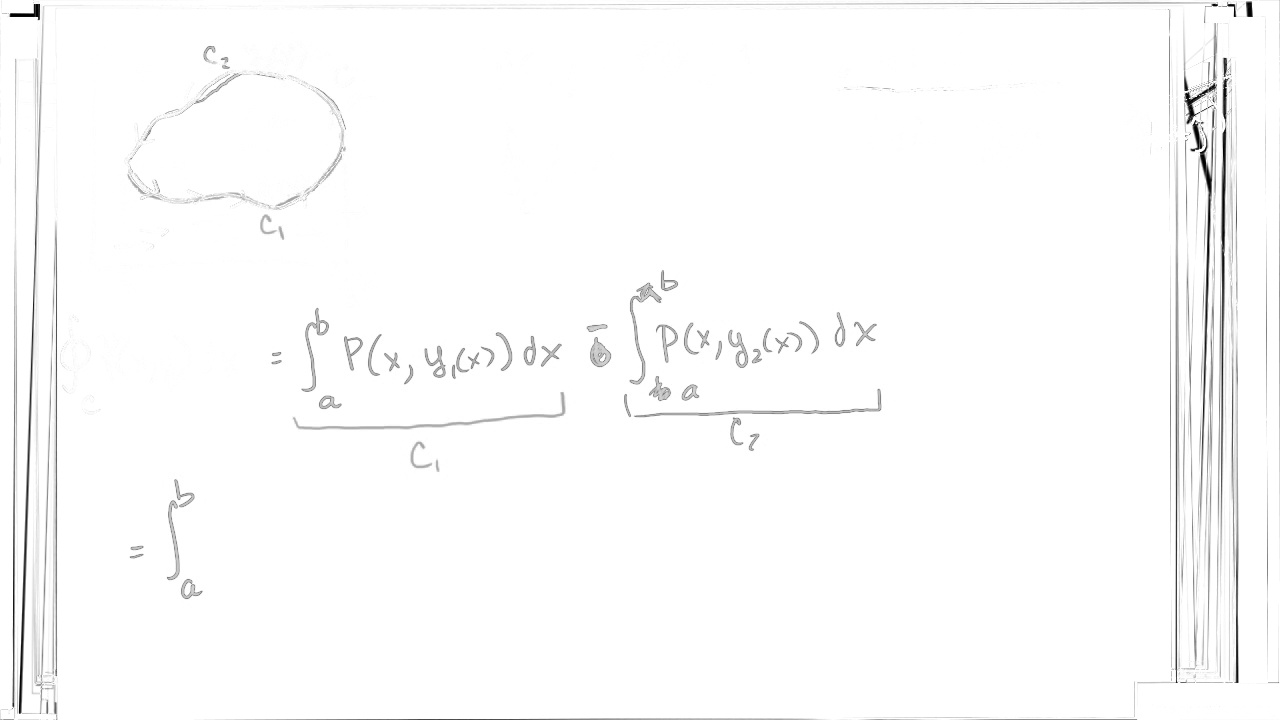 C₂
C₁
= ∫ₐᵇ P(x, y₁(x)) dx − ∫ₐᵇ P(x, y₂(x)) dx
C₁ C₂
= ∫ₐᵇ